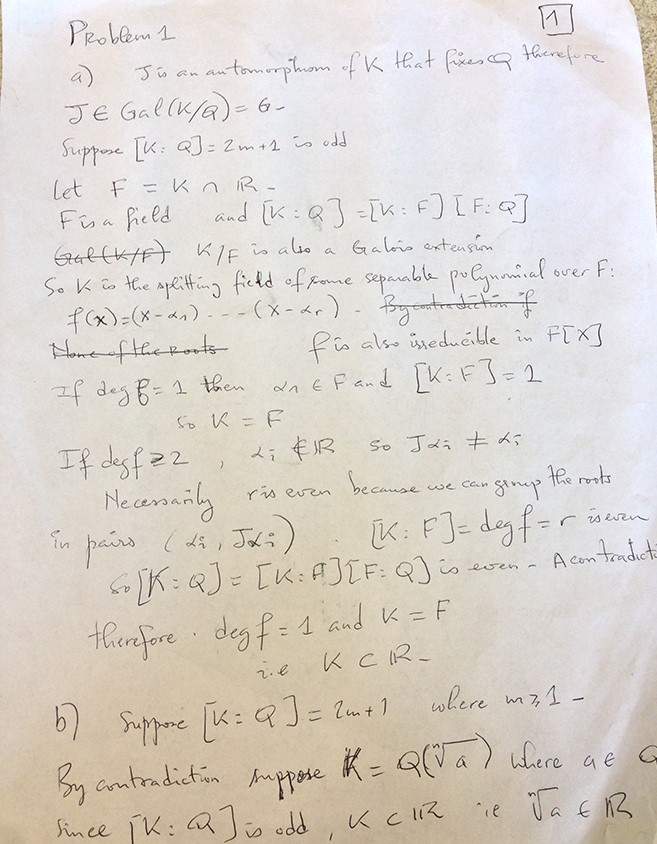 1
Problem 1
a) J is an automorphism of K that fixes Q therefore
J ∈ Gal(K/Q) = G -
Suppose [K: Q] = 2m+1 is odd
Let F = K ∩ IR -
F is a field and [K: Q] = [K: F] [F: Q]
Gal(K/F) K/F is also a Galois extension
So K is the splitting field of some separable polynomial over F:
f(x) = (x-α1) - - - - (x-αr) - By contradiction if
None of the roots f is also irreducible in F[X]
If deg f = 1 then α1 ∈ F and [K: F] = 1
so K = F
If deg f ≥ 2 , αi ∉ IR so Jαi ≠ αi
Necessarily r is even because we can group the roots
in pairs (αi, Jαi) . [K: F] = deg f = r is even
So [K: Q] = [K: F][F: Q] is even - A contradicti
therefore . deg f = 1 and K = F
i.e K ⊂ IR -
b) Suppose [K: Q] = 2m+1 where m ≥ 1 -
By contradiction suppose K = Q(ⁿ√a) where a ∈ Q
Since [K: Q] is odd , K ⊂ IR ie ⁿ√a ∈ IR